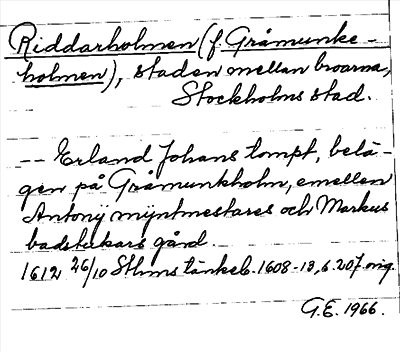 Riddarholmen (f. Gråmunke-
holmen), staden mellan broarna,
Stockholms stad.
-- Erland Johans tompt, belä-
gen på Gråmunkholm, emellen
Antonÿ mÿntmestares och Markus
badstukars gård.
1612 26/10 Sthms tänkeb. 1608-13, s. 207 orig.
G.E. 1966.